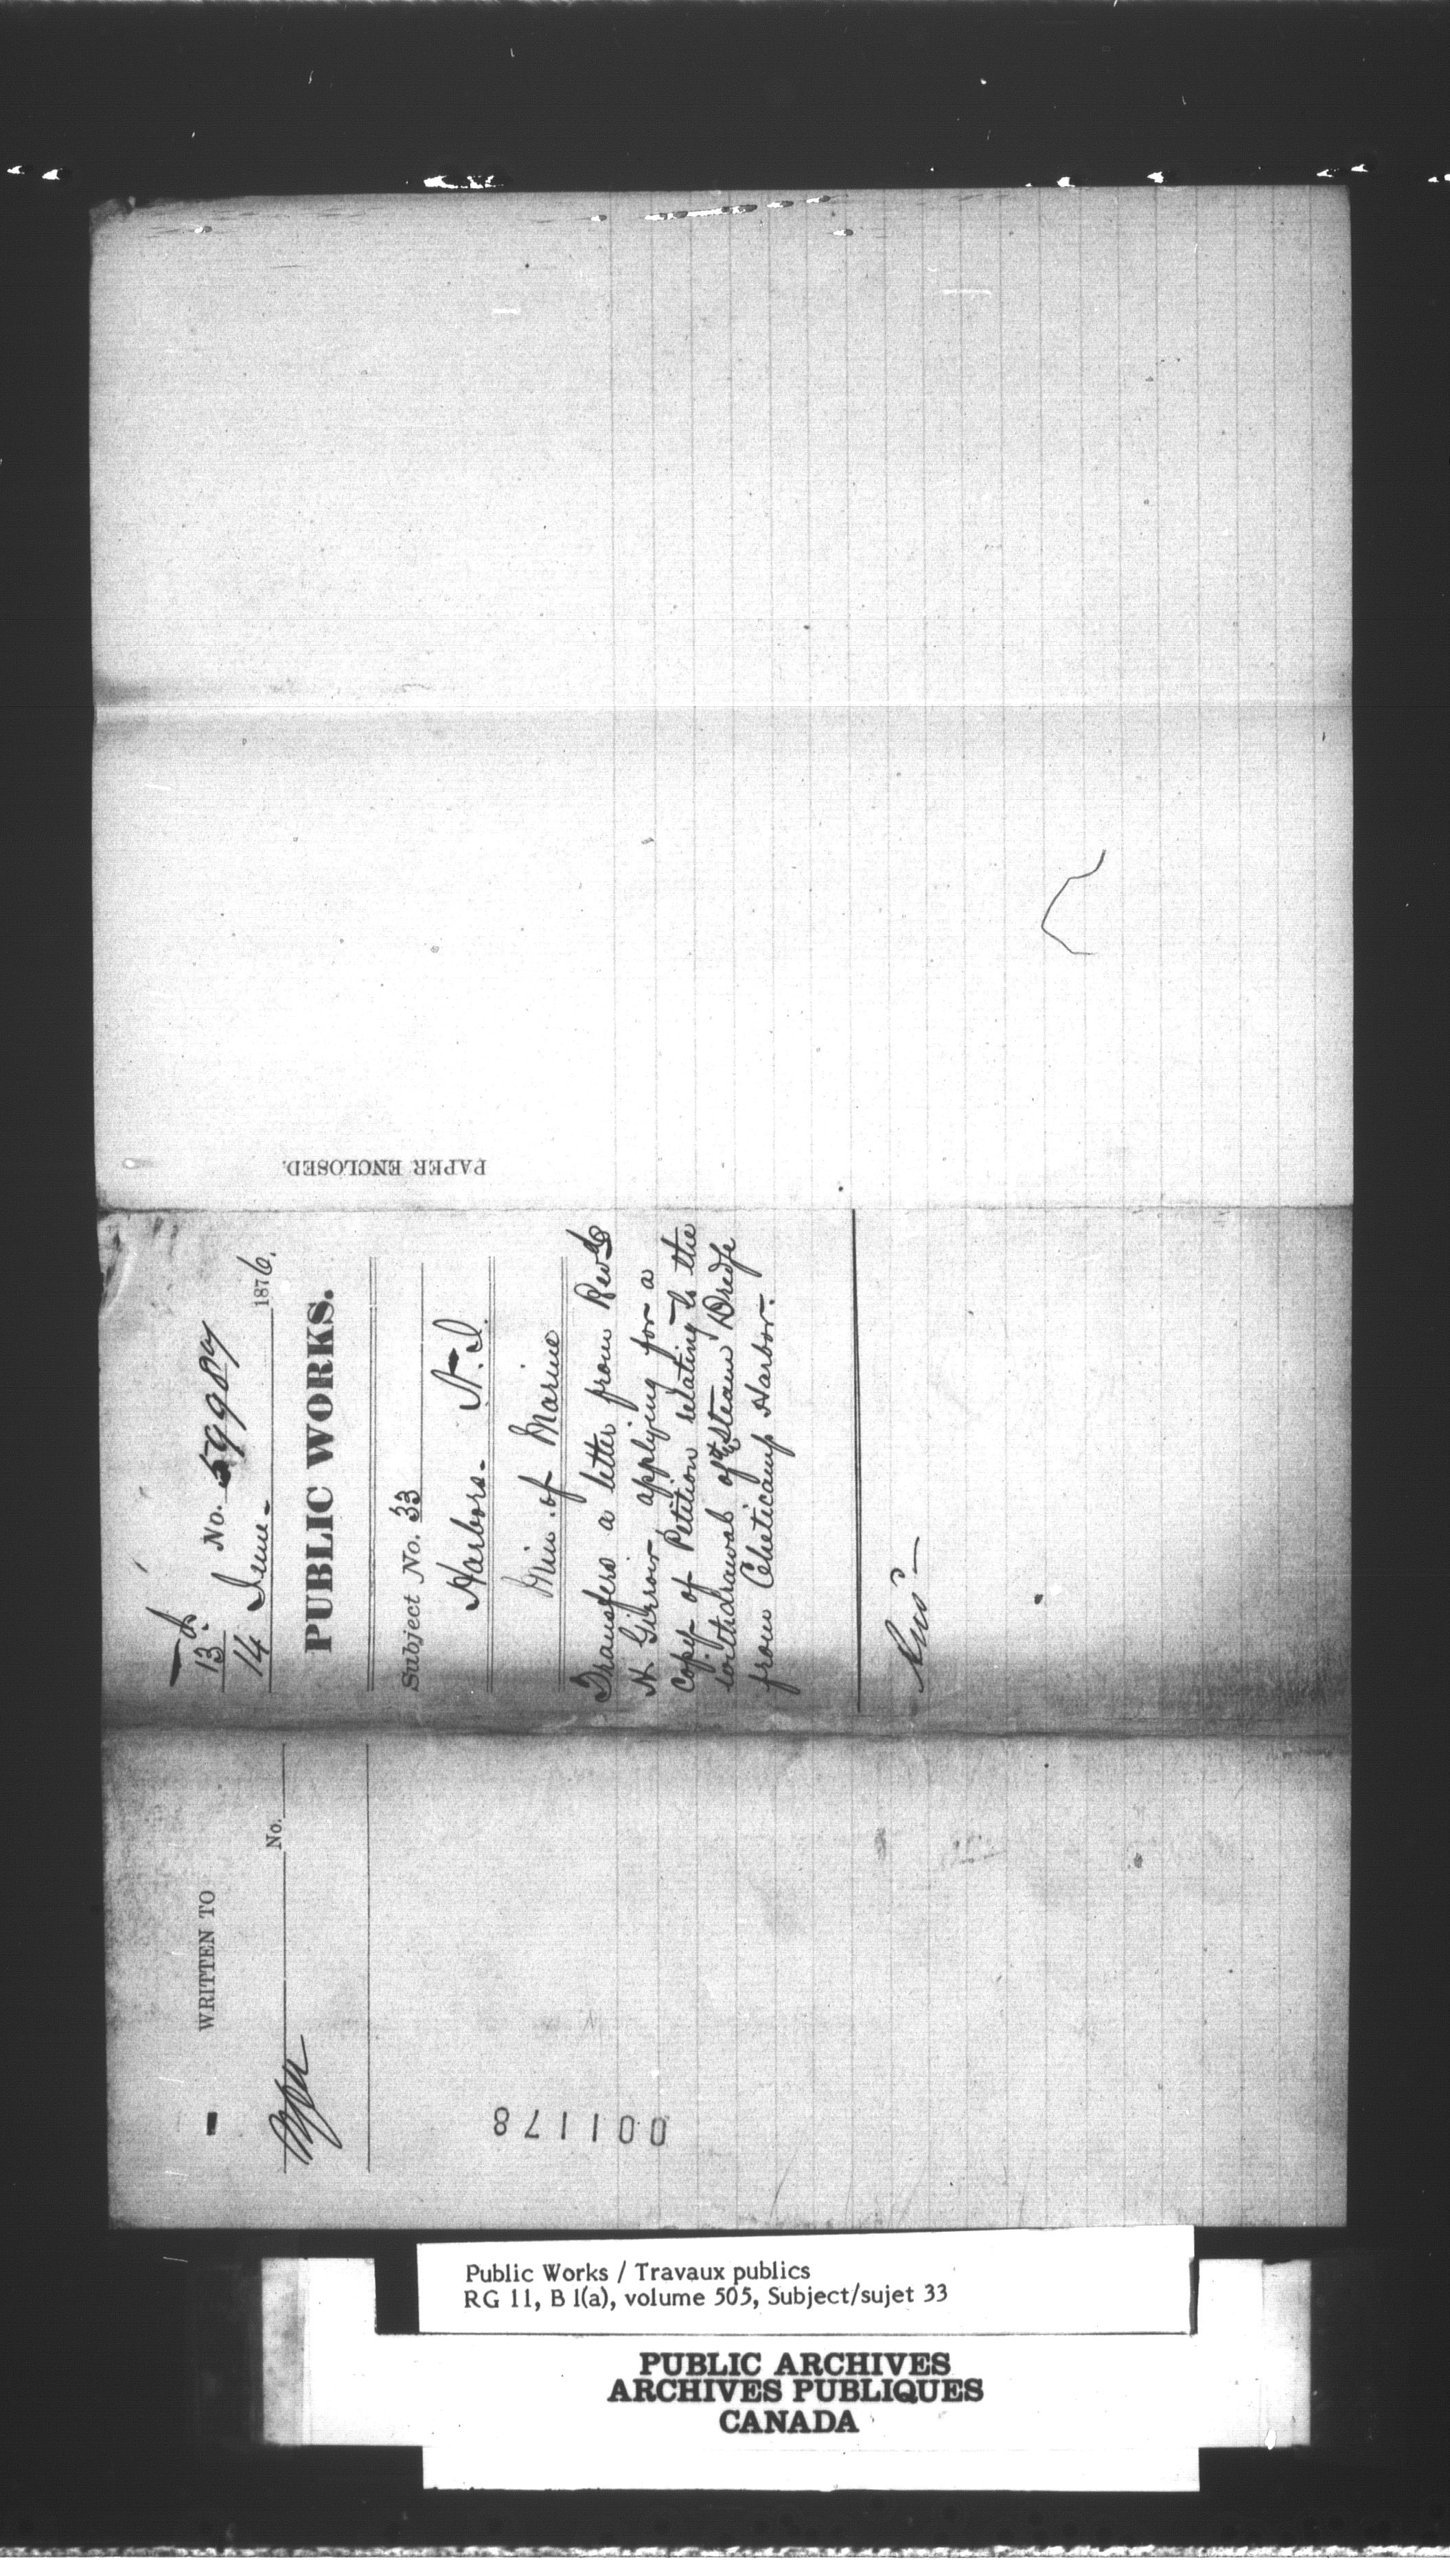 13 No. 59987
14 June - 1876.
PUBLIC WORKS.
Subject No. 33
Harbors -
Min. of Marine
Transfers a letter from Revd
H. Girroir applying for a
Copy of Petition relating to the
withdrawal of the Steam Dredge
from Cheticamp Harbor.
PAPER ENCLOSED.
WRITTEN TO
No.
001178
Public Works / Travaux publics
RG 11, B 1(a), volume 505, Subject/sujet 33
PUBLIC ARCHIVES
ARCHIVES PUBLIQUES
CANADA